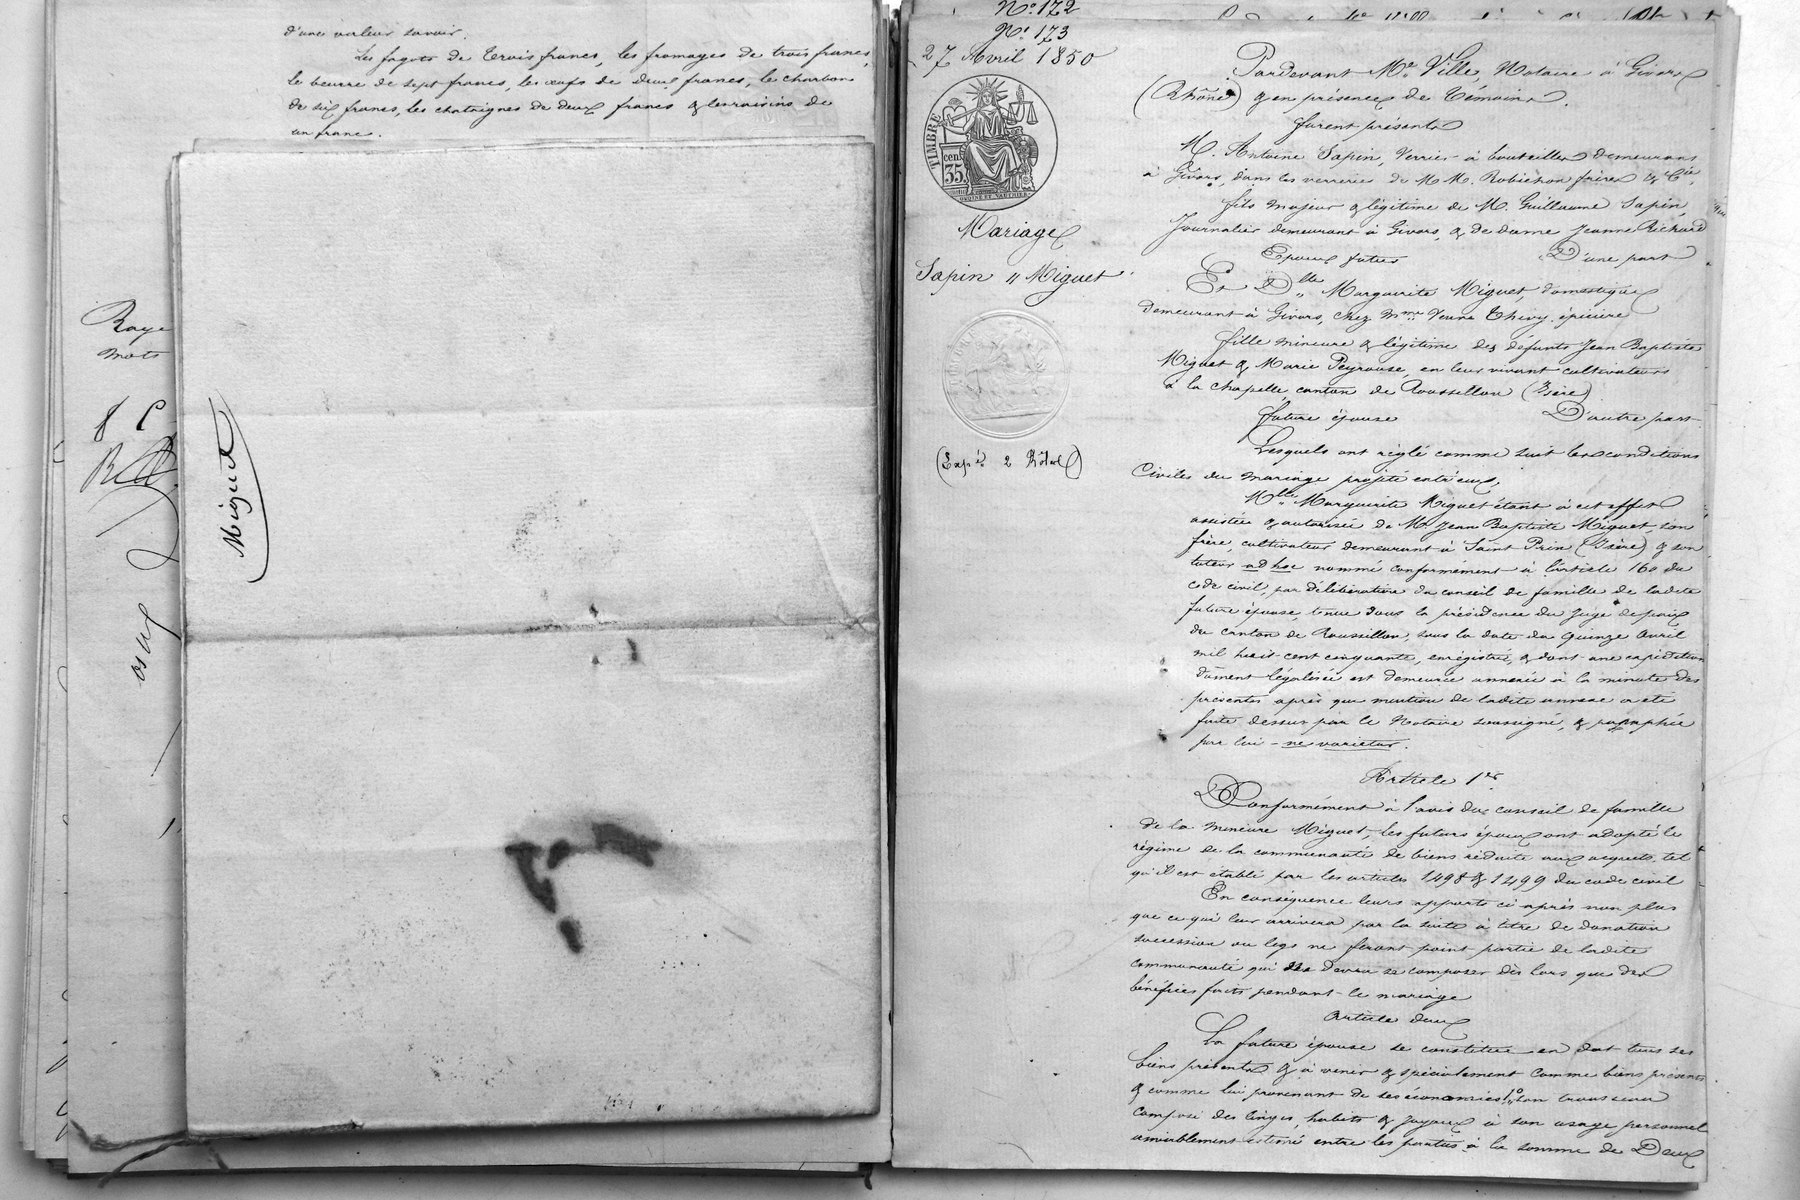 d'une valeur savoir.
Les fagots de trois francs, les fromages de trois francs,
le beurre de sept francs, les œufs de deux francs, le charbon
de six francs, les chataignes de deux francs & les raisins de
un franc.
Raye
mots
Miguet
N.º 172
N.º 173
27 Avril 1850
TIMBRE
cent.
35
Mariage
Sapin " Miguet
(Expé. 2 Rôles)
Pardevant Me. Ville, Notaire à Givors
(Rhône) & en présence de témoins.
furent présents
M. Antoine Sapin, Verrier à bouteilles demeurant
à Givors, dans les verreries de M M. Robichon frères & Cie,
fils majeur & légitime de M. Guillaume Sapin,
Journalier demeurant à Givors, & de dame Jeanne Richard
Epoux futur D'une part
Et Dlle Marguerite Miguet, domestique
demeurant à Givors, chez Mme Veuve Thivy épicière
fille mineure & légitime des défunts Jean Baptiste
Miguet & Marie Peyrouse, en leur vivant cultivateurs
à la Chapelle, canton de Roussillon (Isère)
future épouse D'autre part
Lesquels ont réglé comme suit les conditions
Civiles du mariage projeté entr'eux,
Mlle Marguerite Miguet étant à cet effet
assistée & autorisée de M. Jean Baptiste Miguet son
frère, cultivateur demeurant à Saint Prin (Isère) & son
tuteur ad hoc nommé conformément à l'article 160 du
code civil, par délibération du conseil de famille de ladite
future épouse, tenue sous la présidence du Juge de paix
du canton de Roussillon, sous la date du quinze avril
mil huit cent cinquante, enrégistrée, & dont une expédition
dûment légalisée est demeurée annexée à la minute des
présentes après que mention de ladite annexe a été
faite dessus par le Notaire soussigné, & paraphée
par lui - ne varietur.
Article 1er.
Conformément à l'avis du conseil de famille
de la mineure Miguet, les futurs époux ont adopté le
régime de la communauté de biens réduite aux acquets, tel
qu'il est établi par les articles 1498 & 1499 du code civil
En conséquence leurs apports ci après non plus
que ce qui leur arrivera par la suite à titre de donation
succession ou legs ne feront point partie de ladite
communauté qui devra se composer dès lors que des
bénéfices faits pendant le mariage
Article deux
La future épouse se constitue en dot tous ses
biens présents & à venir & spécialement comme biens présents
& comme lui provenant de ses économies 1º son trousseau
composé des linges, habits & joyaux à son usage personnel
amiablement estimé entre les parties à la somme de Deux